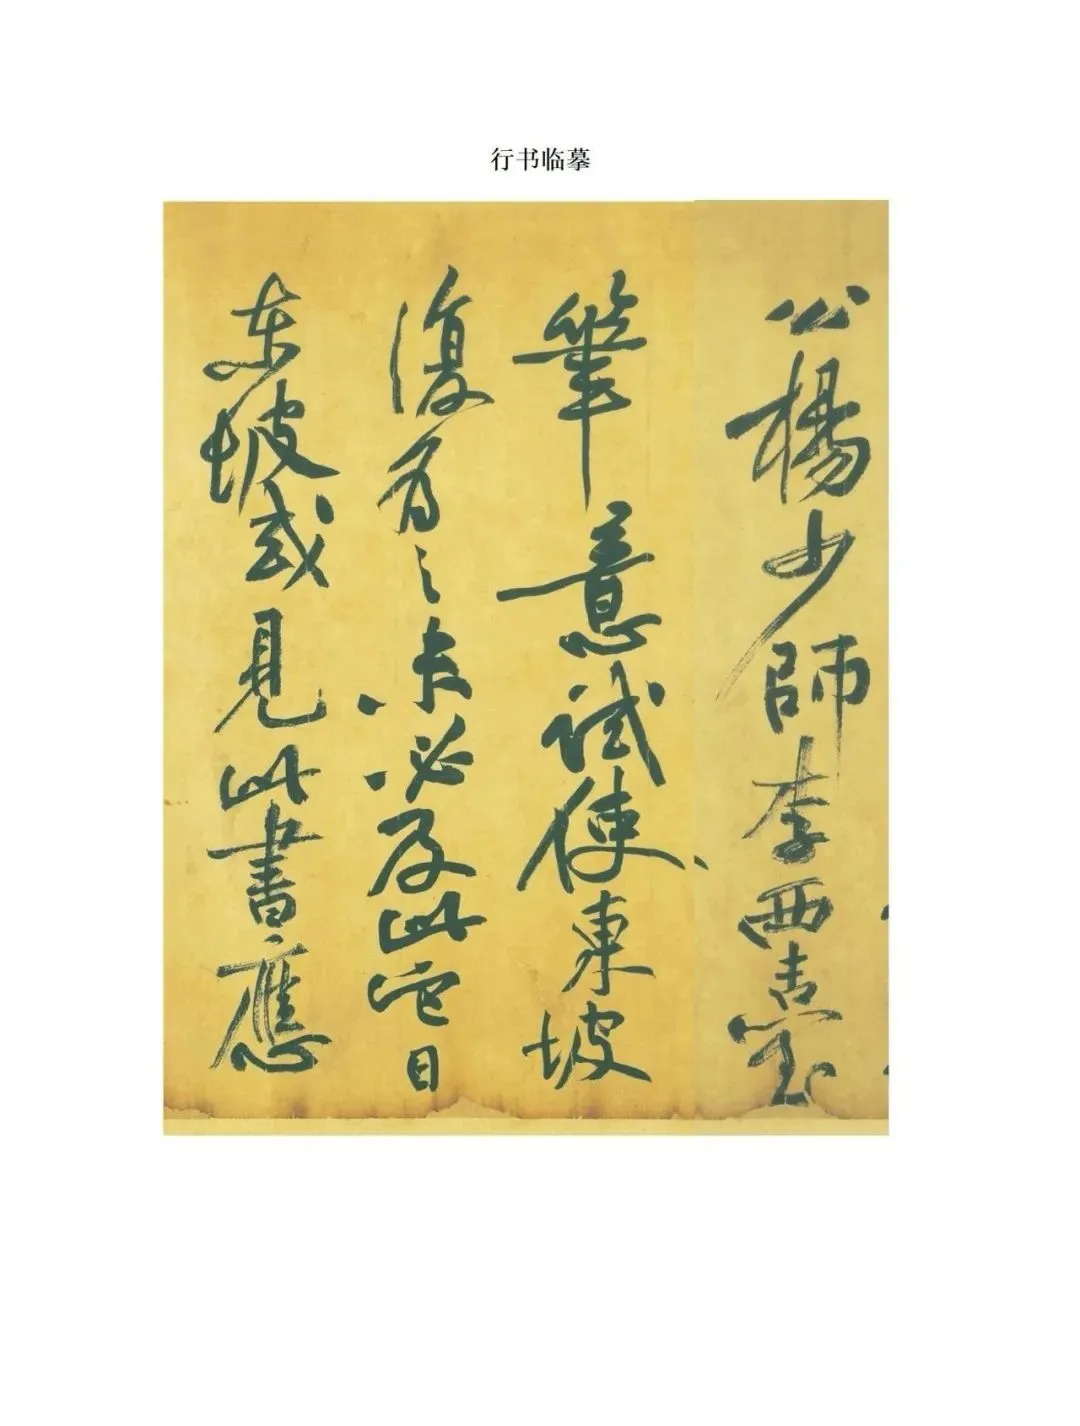 行书临摹
公楊少師李西臺
筆意試使東坡
復為之未必及此它日
東坡或見此書應